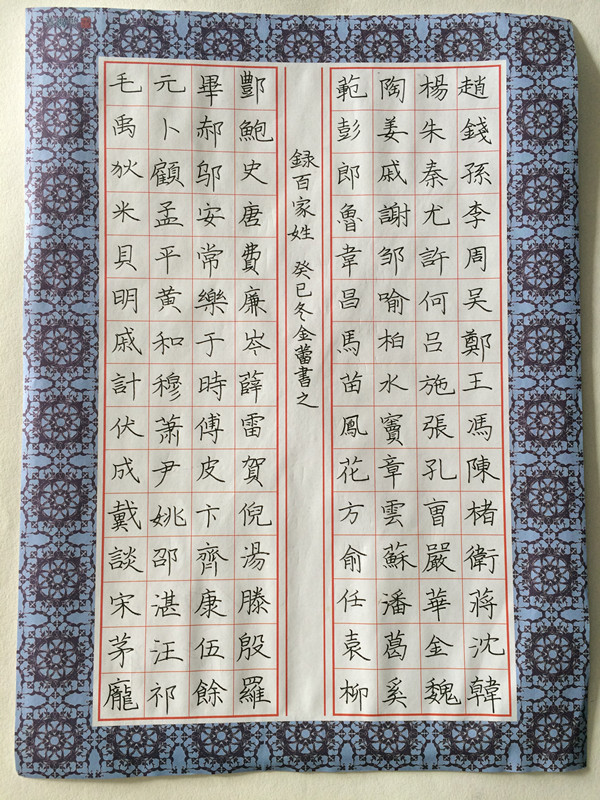 趙錢孫李周吴鄭王馮陳楮衛蔣沈韓
楊朱秦尤許何吕施張孔曹嚴華金魏
陶姜戚謝邹喻柏水竇章雲蘇潘葛奚
範彭郎魯韋昌馬苗鳳花方俞任袁柳
録百家姓 癸巳冬金蕾書之
酆鮑史唐費廉岑薛雷賀倪湯滕殷羅
畢郝邬安常樂于時傅皮卞齊康伍餘
元卜顧孟平黄和穆蕭尹姚邵湛汪祁
毛禹狄米貝明戚計伏成戴談宋茅龐